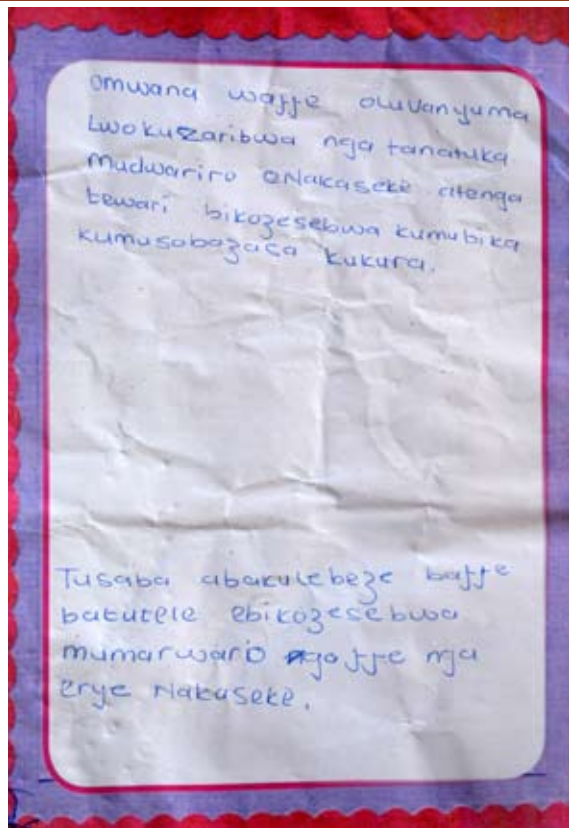 omwana waffe oluvanyuma
Lwokuzaribwa nga tanatuka
mudwariro eNakaseke atenga
tewari bikozesebwa kumubika
kumusobazaca kukura.
Tusaba abakulebeze baffe
batutele ebikozesebwa
mumarwario goffe nga
erye Nakaseke.